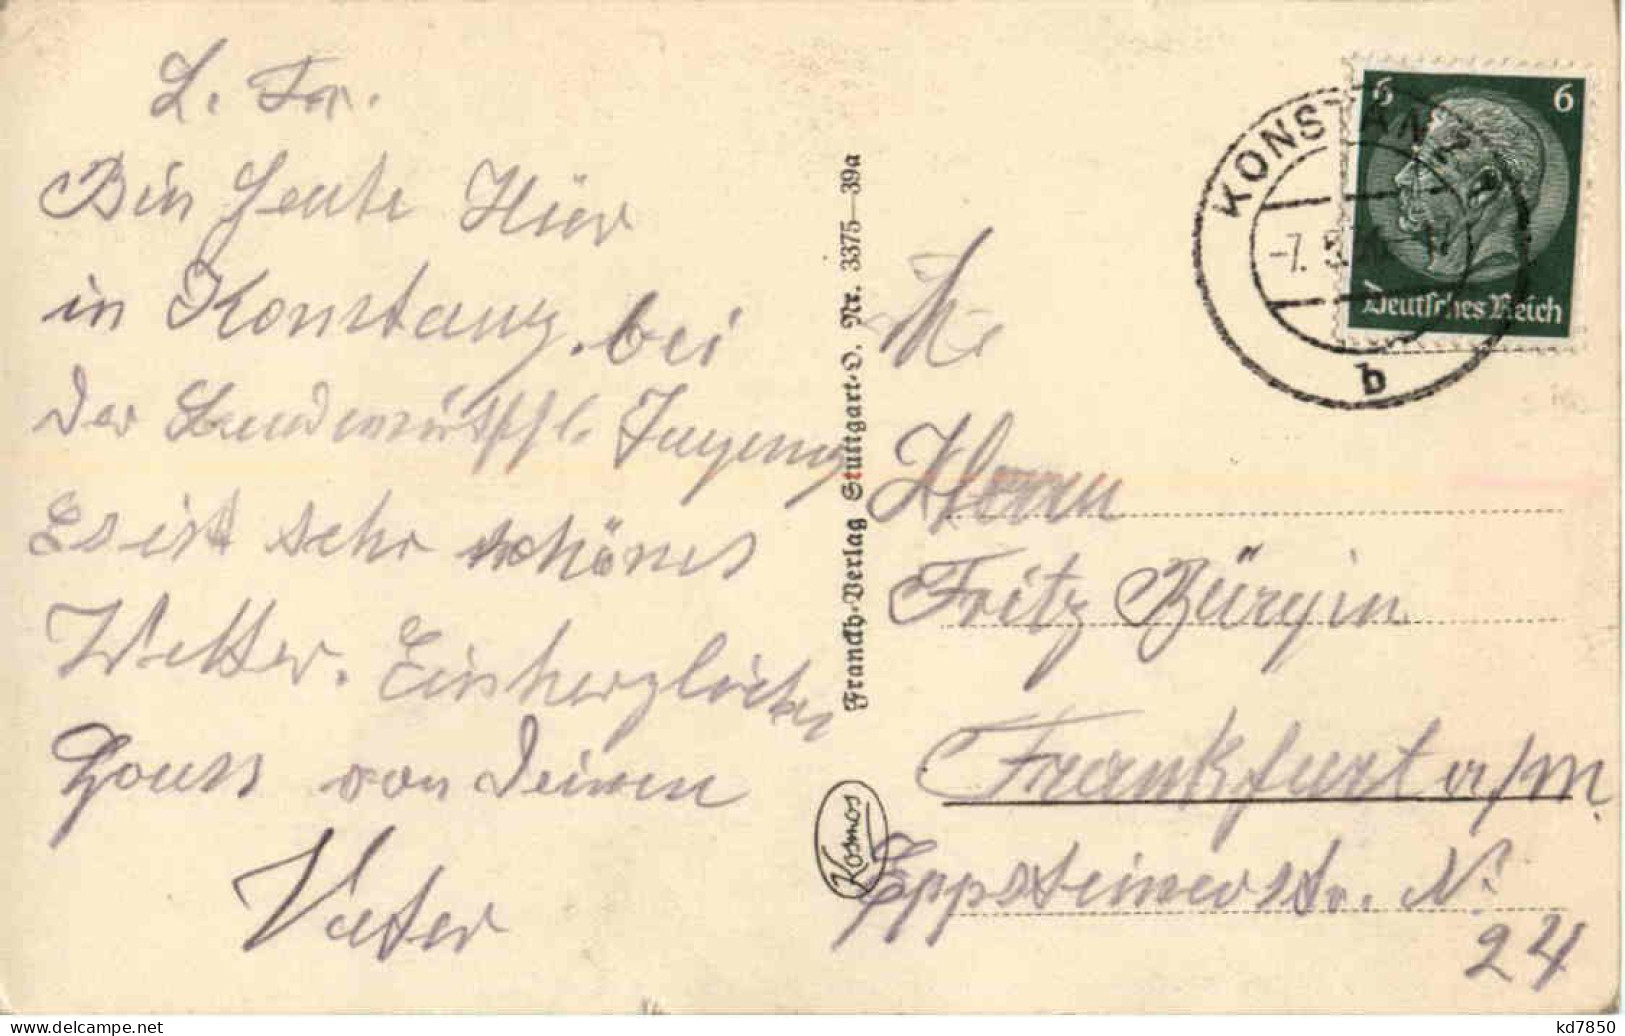 L. Fr.
Bin heute Hier
in Konstanz. bei
der Landwirtschftl. Tagung
Es ist sehr schönes
Wetter. Ein herzlichen
Gruss von Deinem
Vater
Franckh-Verlag Stuttgart-O. Nr. 3375—39a
Kosmos
KONSTANZ
-7. 5.
b
6 6
Deutsches Reich
Herrn
Fritz Bürgin
Frankfurt a/m.
Eppsteinerstr. N:
24
kd7850